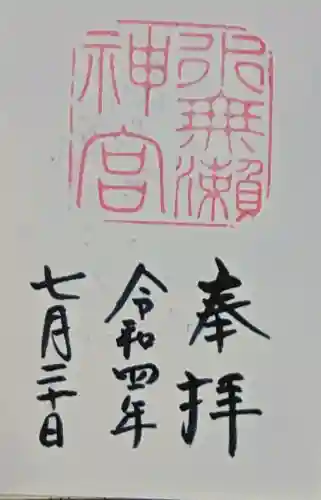 水無瀬
神宮
奉拝
令和四年
七月三十日